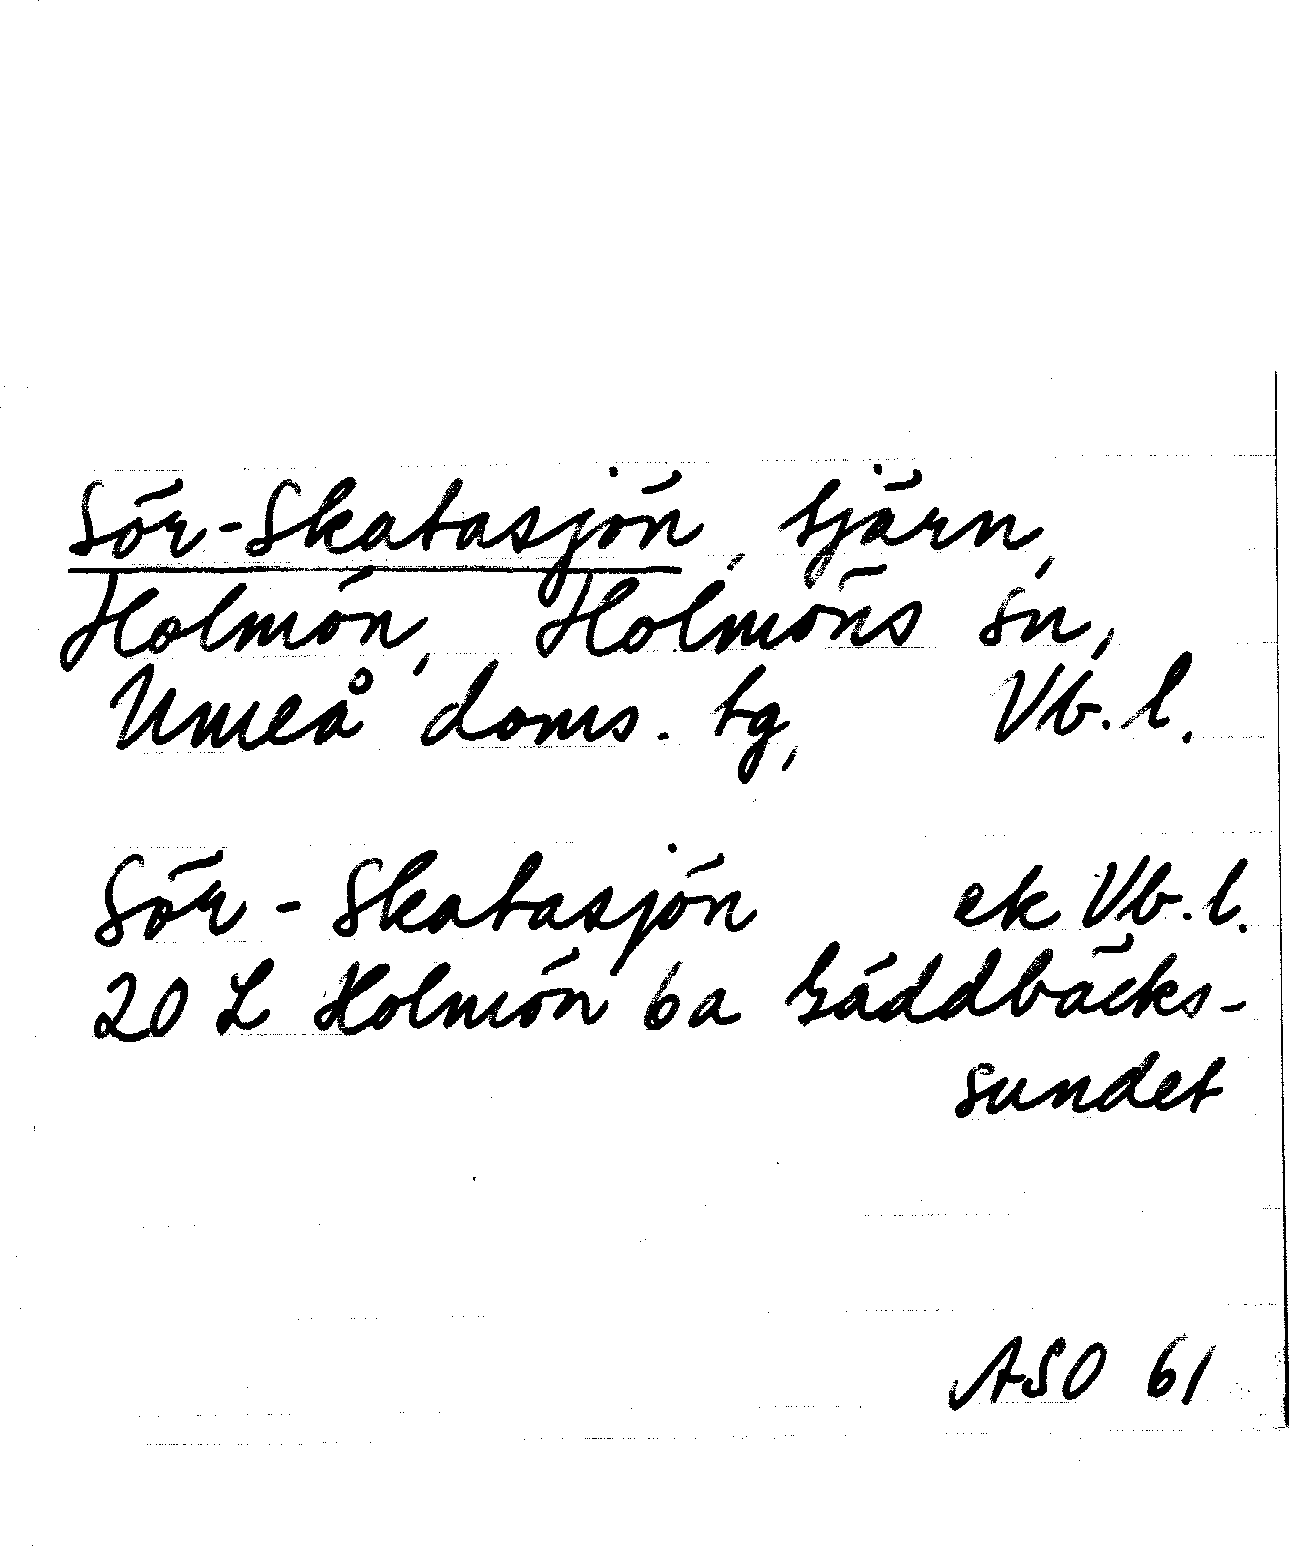 Sör-Skatasjön, tjärn,
Holmön, Holmöns sn,
Umeå doms. tg, Vb. l.
Sör-Skatasjön ek Vb. l.
20 L Holmön 6a Gäddbäcks-
sundet
ASO 61